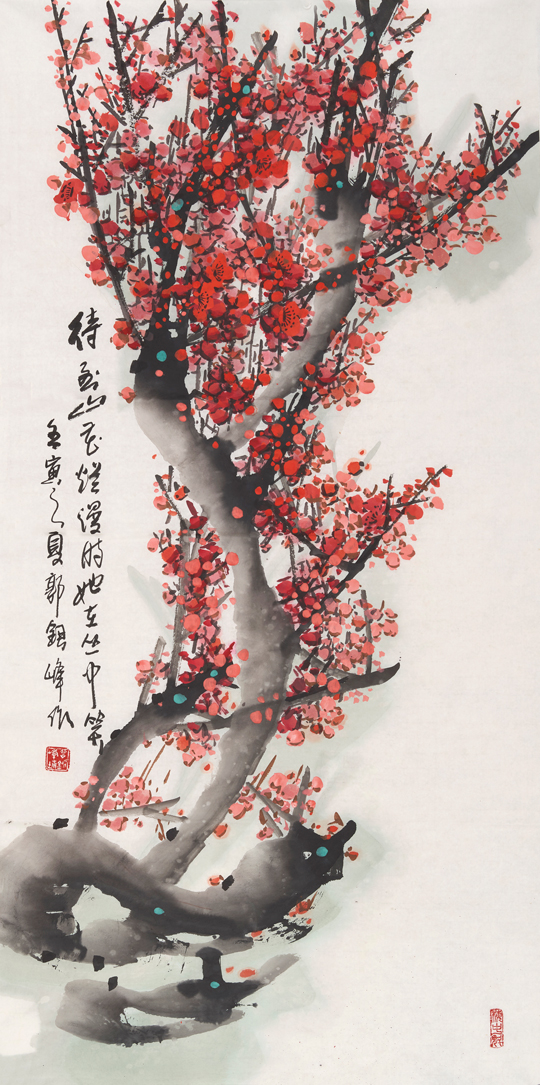 待到山花烂漫时她在丛中笑
壬寅之夏郭镇峰作